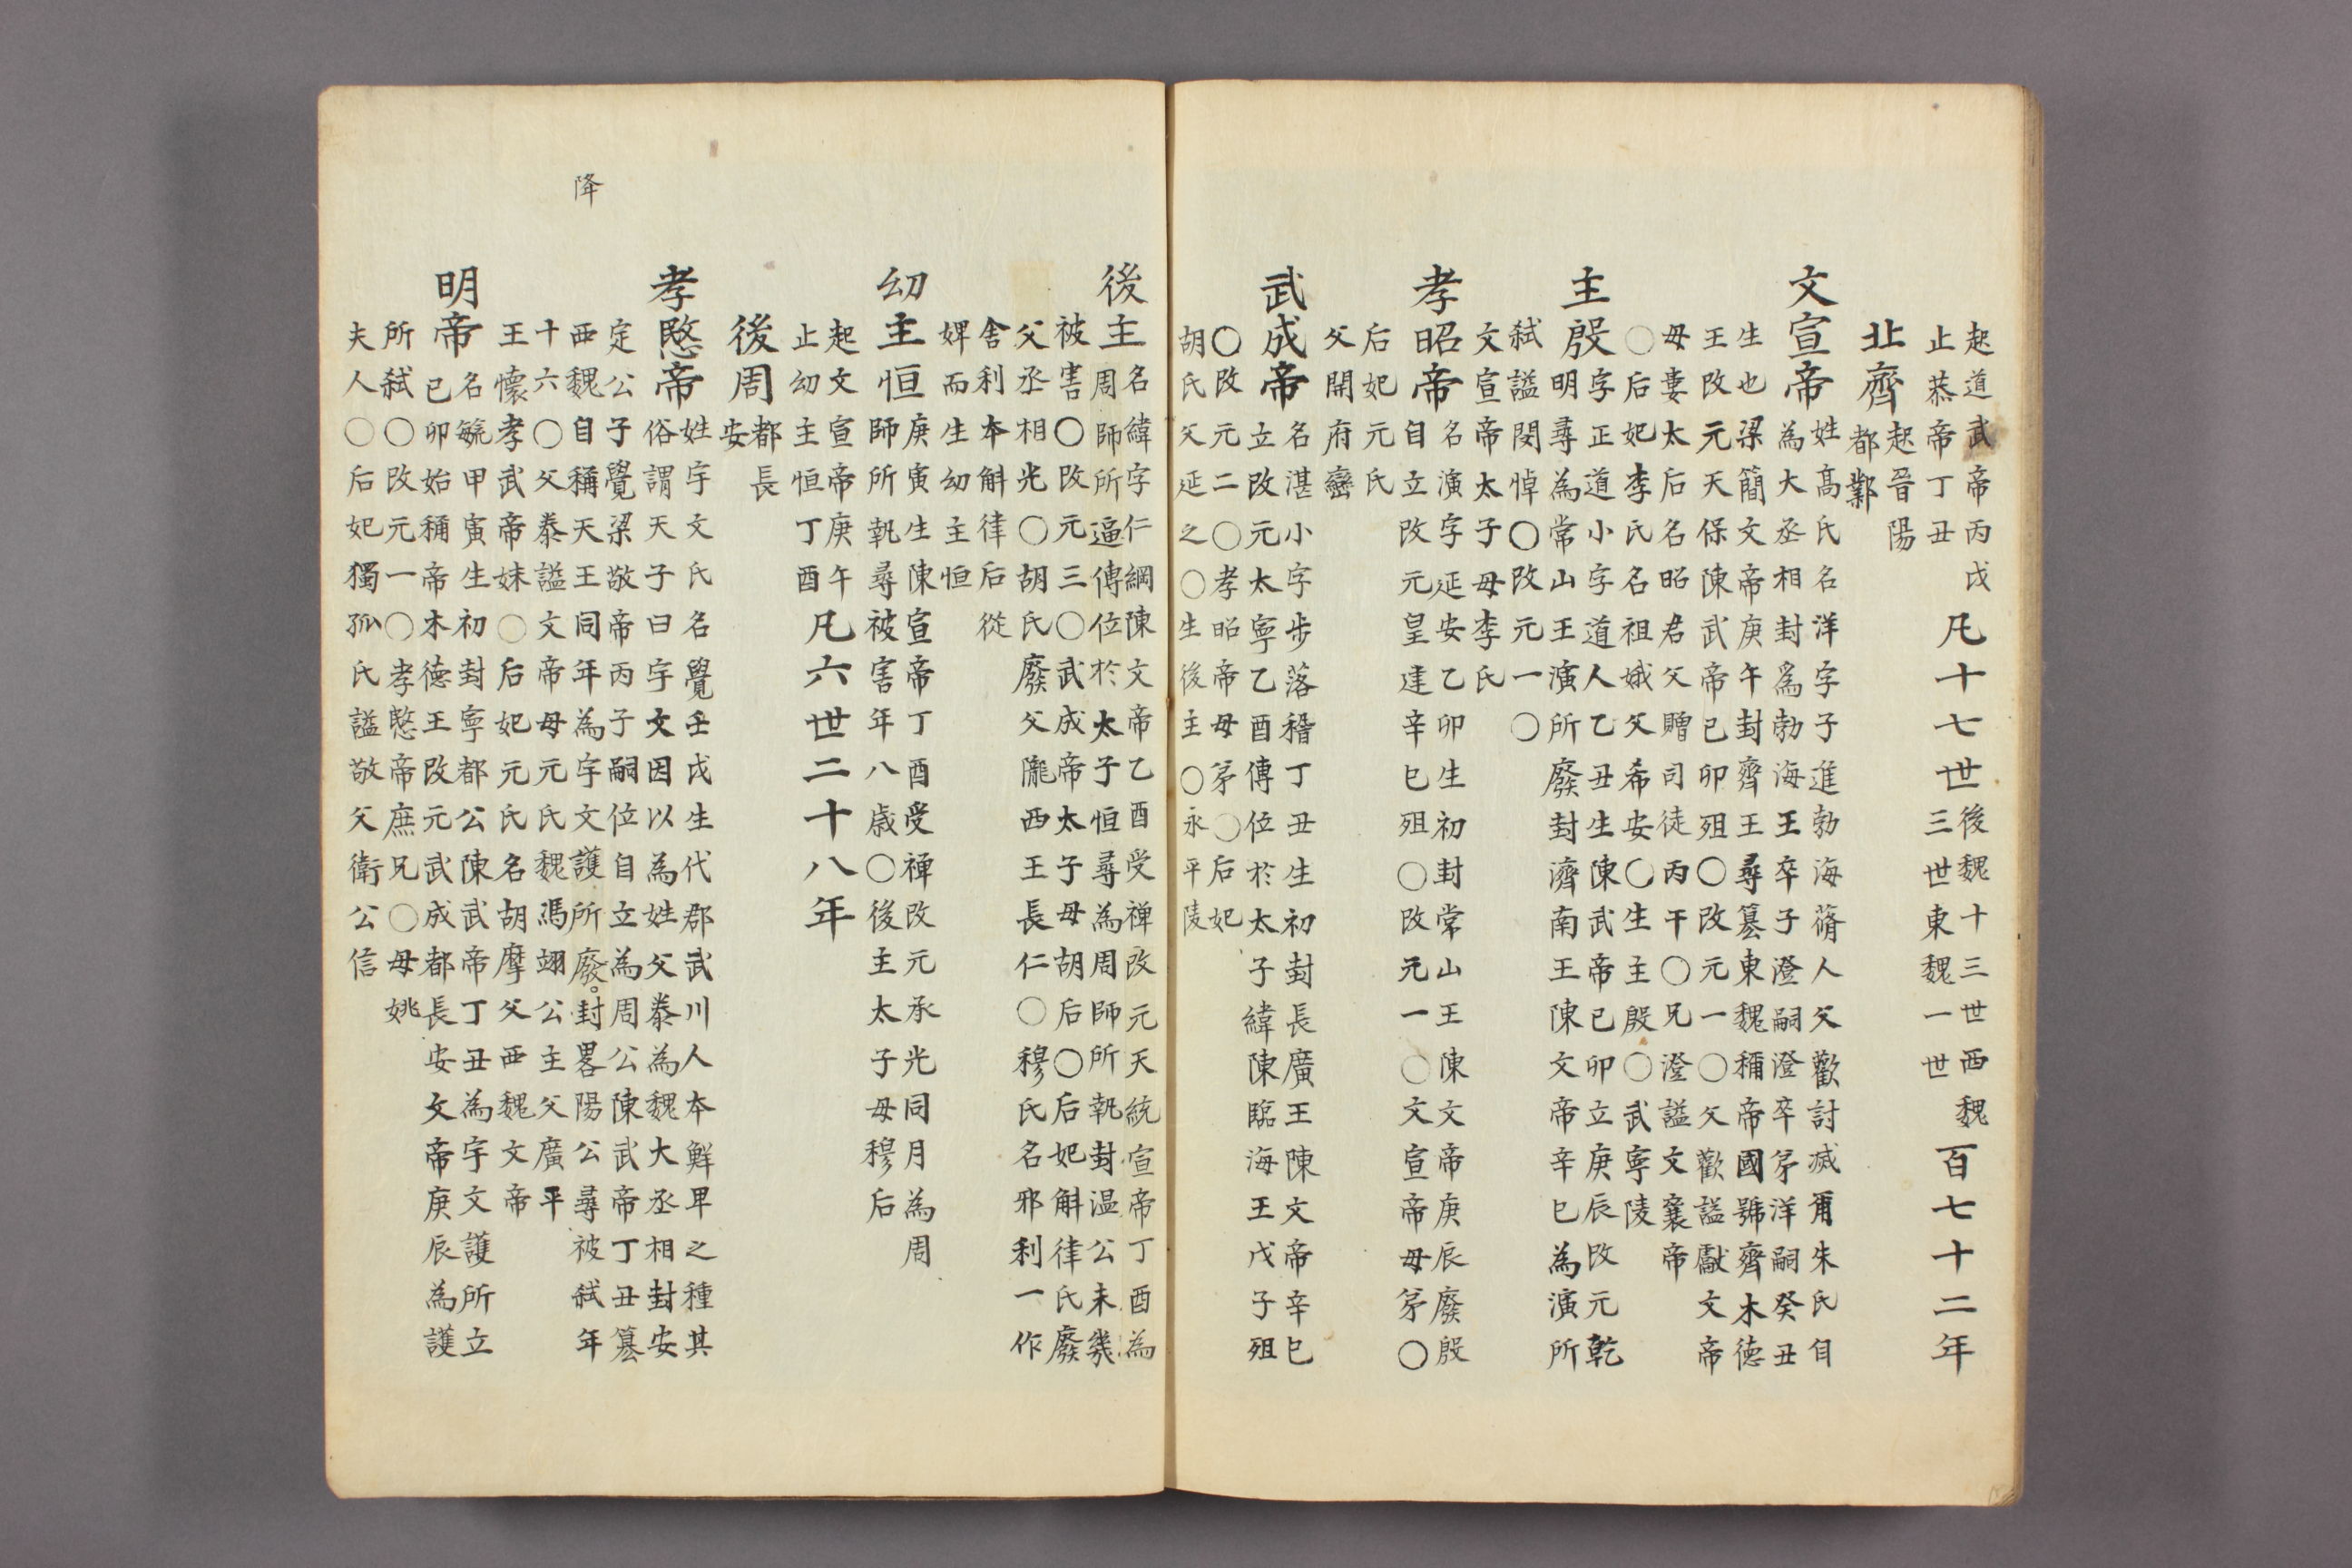 起道武帝丙戌
止恭帝丁丑
凡十七世
後魏十三世西魏
三世東魏一世
百七十二年
北齊
起晉陽
都鄴
文宣帝
姓高氏名洋字子進勃海蓨人父歡討滅爾朱氏自
為大丞相封爲勃海王卒子澄嗣澄卒弟洋嗣癸丑
生也梁簡文帝庚午封齊王尋篡東魏稱帝國號齊木德
王改元天保陳武帝己卯殂〇改元一〇父歡謚獻文帝
母婁太后名昭君父贈司徒丙干〇兄澄謚文襄帝
〇后妃李氏名祖娥父希安〇生主殷〇武寧陵
主殷
字正道小字道人乙丑生陳武帝己卯立庚辰改元乾
明尋為常山王演所廢封濟南王陳文帝辛巳為演所
弑謚閔悼〇改元一〇
文宣帝太子母李氏
孝昭帝
名演字延安乙卯生初封常山王陳文帝庚辰廢殷
自立改元皇建辛巳殂〇改元一〇文宣帝母弟〇
后妃元氏
父開府巒
武成帝
名湛小字步落稽丁丑生初封長廣王陳文帝辛巳
立改元太寧乙酉傳位於太子緯陳臨海王戊子殂
〇改元二〇孝昭帝母弟〇后妃
胡氏父延之〇生後主〇永平陵
後主
名緯字仁綱陳文帝乙酉受禅改元天統宣帝丁酉為
周師所逼傳位於太子恒尋為周師所執封温公未幾
被害〇改元三〇武成帝太子母胡后〇后妃斛律氏廢
父丞相光〇胡氏廢父隴西王長仁〇穆氏名邪利一作
舎利本斛律后從
婢而生幼主恒
幼主恒
庚寅生陳宣帝丁酉受禅改元承光同月為周
師所執尋被害年八歳〇後主太子母穆后
起文宣帝庚午
止幼主恒丁酉
凡六世二十八年
後周
都長
安
孝愍帝
姓宇文氏名覺壬戌生代郡武川人本鮮卑之種其
俗謂天子曰宇文因以為姓父泰為魏大丞相封安
定公子覺梁敬帝丙子嗣位自立為周公陳武帝丁丑篡
西魏自稱天王同年為宇文護所廢。封畧陽公尋被弑年
十六〇父泰謚文帝母元氏魏馮翊公主父廣平
王懐孝武帝妹〇后妃元氏名胡摩父西魏文帝
降
明帝
名毓甲寅生初封寧都公陳武帝丁丑為宇文護所立
已卯始稱帝木德王改元武成都長安文帝庚辰為護
所弑〇改元一〇孝愍帝庶兄〇母姚
夫人〇后妃獨孤氏謚敬父衛公信